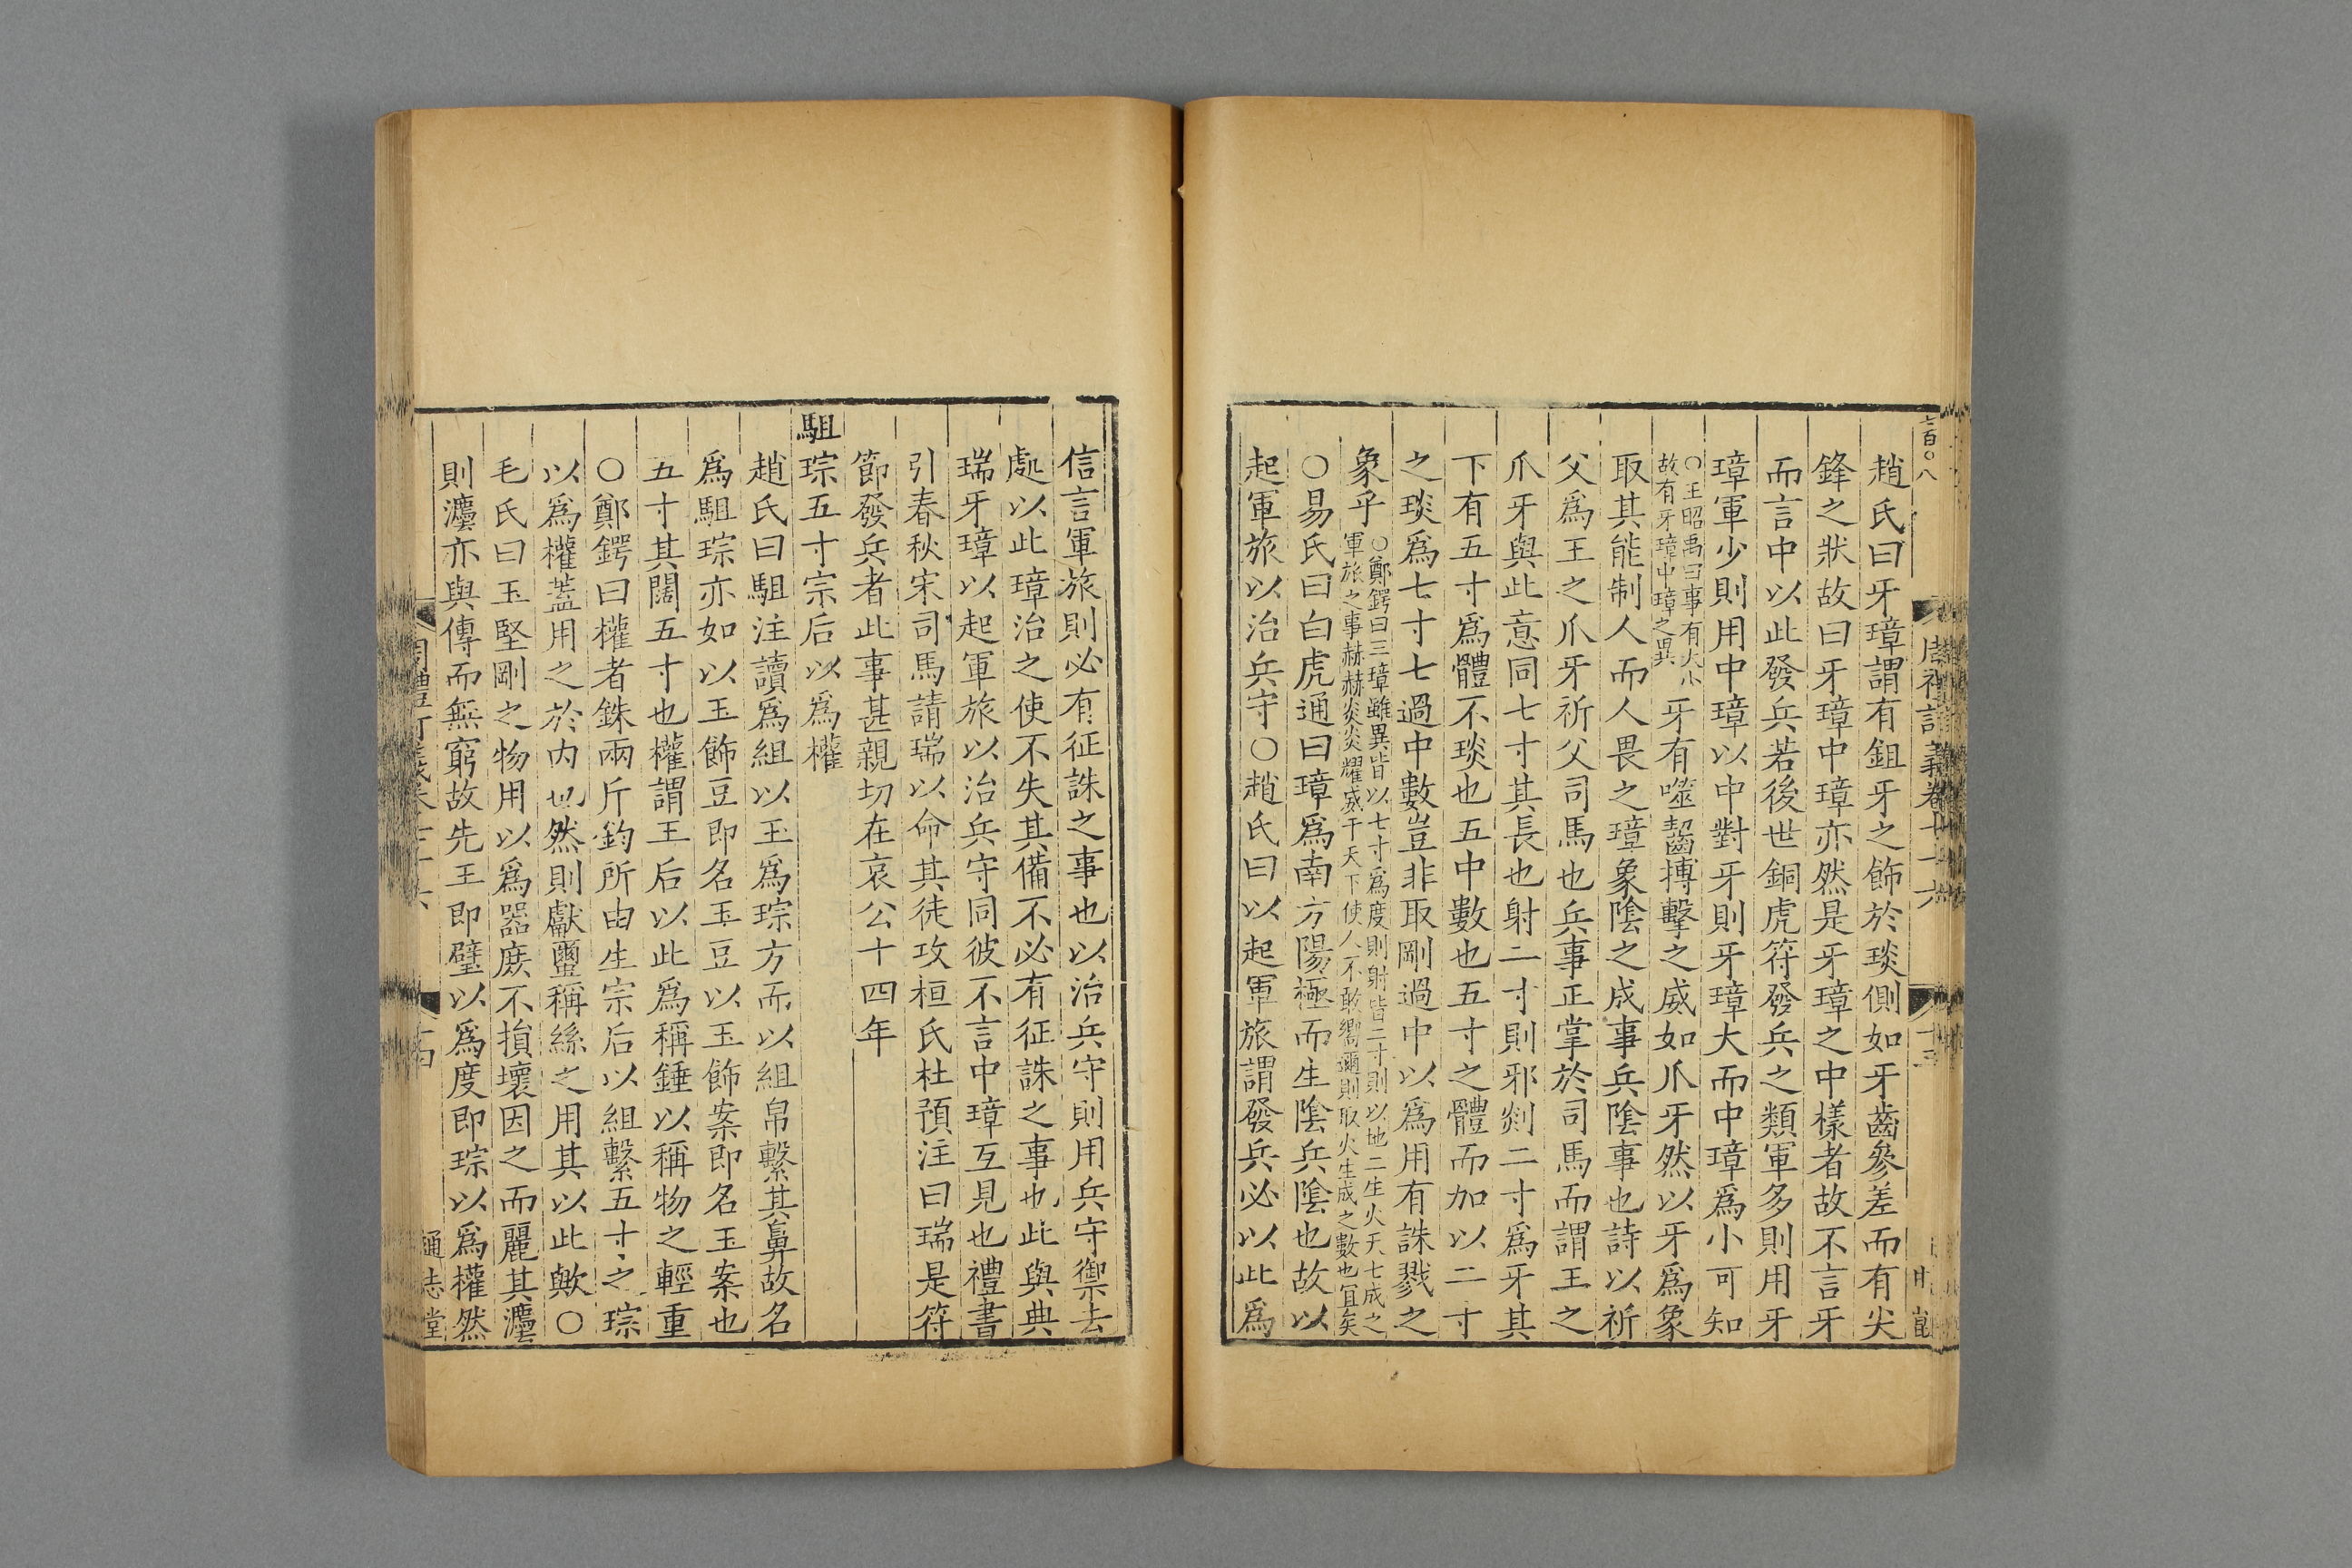 七百〇八
周禮訂義卷七十六
十三
甘
趙氏曰牙璋謂有鉏牙之飾於琰側如牙齒參差而有尖
鋒之狀故曰牙璋中璋亦然是牙璋之中樣者故不言牙
而言中以此發兵若後世銅虎符發兵之類軍多則用牙
璋軍少則用中璋以中對牙則牙璋大而中璋爲小可知
〇王昭禹曰事有大小
故有牙璋中璋之異
牙有噬齧搏擊之威如爪牙然以牙爲象
取其能制人而人畏之璋象陰之成事兵陰事也詩以祈
父爲王之爪牙祈父司馬也兵事正掌於司馬而謂王之
爪牙與此意同七寸其長也射二寸則邪剡二寸爲牙其
下有五寸爲體不琰也五中數也五寸之體而加以二寸
之琰爲七寸七過中數豈非取剛過中以爲用有誅戮之
象乎
〇鄭鍔曰三璋雖異皆以七寸爲度則射皆二寸則以地二生火天七成之
軍旅之事赫赫炎炎耀威于天下使人不敢嚮邇則取火生成之數也宜矣
〇易氏曰白虎通曰璋爲南方陽極而生陰兵陰也故以
起軍旅以治兵守〇趙氏曰以起軍旅謂發兵必以此爲
信言軍旅則必有征誅之事也以治兵守則用兵守禦去
處以此璋治之使不失其備不必有征誅之事也此與典
瑞牙璋以起軍旅以治兵守同彼不言中璋互見也禮書
引春秋宋司馬請瑞以命其徒攻桓氏杜預注曰瑞是符
節發兵者此事甚親切在哀公十四年
駔琮五寸宗后以爲權
趙氏曰駔注讀爲組以玉爲琮方而以組帛繫其鼻故名
爲駔琮亦如以玉飾豆即名玉豆以玉飾案即名玉案也
五寸其闊五寸也權謂王后以此爲稱錘以稱物之輕重
〇鄭鍔曰權者銖兩斤鈞所由生宗后以組繫五寸之琮
以爲權蓋用之於内也然則獻繭稱絲之用其以此歟〇
毛氏曰玉堅剛之物用以爲器庶不損壞因之而麗其灋
則灋亦與傳而無窮故先王即璧以爲度即琮以爲權然
周禮訂義卷七十六
十四
通志堂